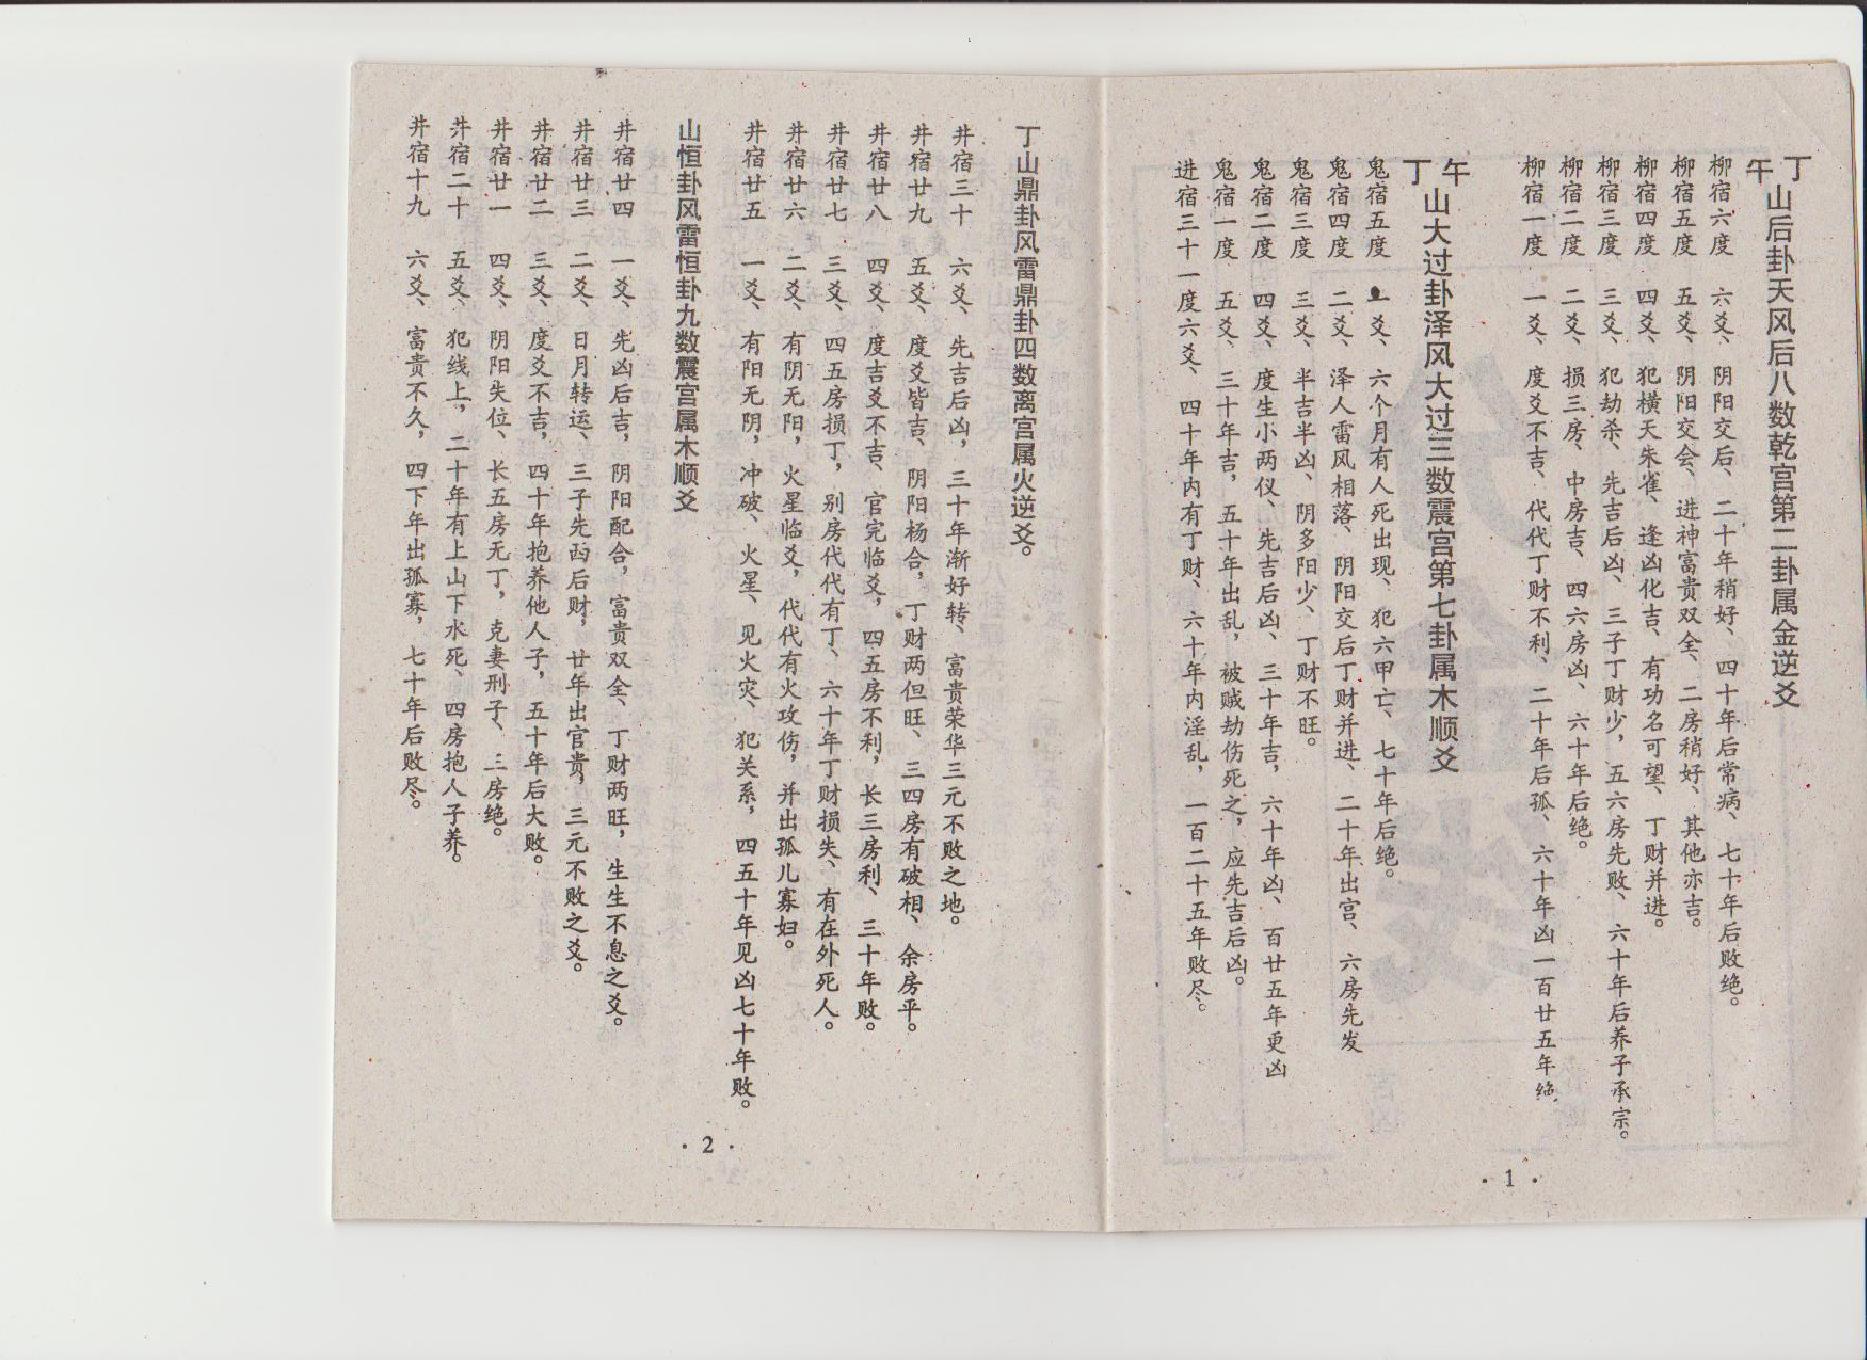 丁午山后卦天风后八数乾宫第二卦属金逆爻
柳宿六度 六爻、阴阳交后、二十年稍好、四十年后常病、七十年后败绝。
柳宿五度 五爻、阴阳交会、进神富贵双全、二房稍好、其他亦吉。
柳宿四度 四爻、犯横天朱雀、逢凶化吉、有功名可望、丁财并进。
柳宿三度 三爻、犯劫杀、先吉后凶、三子丁财少，五六房先败、六十年后养子承宗。
柳宿二度 二爻、损三房、中房吉、四六房凶、六十年后绝。
柳宿一度 一爻、度爻不吉、代代丁财不利、二十年后孤、六十年凶一百廿五年绝
午丁山大过卦泽风大过三数震宫第七卦属木顺爻
鬼宿五度 一爻、六个月有人死出现、犯六甲亡、七十年后绝。
鬼宿四度 二爻、泽人雷风相落、阴阳交后丁财并进、二十年出宫、六房先发
鬼宿三度 三爻、半吉半凶、阴多阳少、丁财不旺。
鬼宿二度 四爻、度生小两仪、先吉后凶、三十年吉，六十年凶、百廿五年更凶
鬼宿一度 五爻、三十年吉，五十年出乱，被贼劫伤死之，应先吉后凶。
进宿三十一度六爻、四十年内有丁财、六十年内淫乱，一百二十五年败尽。
·1·
丁山鼎卦风雷鼎卦四数离宫属火逆爻。
井宿三十 六爻、先吉后凶，三十年渐好转、富贵荣华三元不败之地。
井宿廿九 五爻、度爻皆吉、阴阳杨合，丁财两但旺、三四房有破相、余房平。
井宿廿八 四爻、度吉爻不吉、官完临爻，四五房不利，长三房利、三十年败。
井宿廿七 三爻、四五房损丁，别房代代有丁、六十年丁财损失、有在外死人。
井宿廿六 二爻、有阴无阳，火星临爻，代代有火攻伤，并出孤儿寡妇。
井宿廿五 一爻、有阳无阴，冲破、火星、见火灾、犯关系，四五十年见凶七十年败。
山恒卦风雷恒卦九数震宫属木顺爻
井宿廿四 一爻、先凶后吉，阴阳配合，富贵双全、丁财两旺，生生不息之爻。
井宿廿三 二爻、日月转运、三子先凶后财，廿年出官贵，三元不败之爻。
井宿廿二 三爻、度爻不吉，四十年抱养他人子，五十年后大败。
井宿廿一 四爻、阴阳失位、长五房无丁，克妻刑子、三房绝。
井宿二十 五爻、犯线上，二十年有上山下水死、四房抱人子养。
井宿十九 六爻、富贵不久，四下年出孤寡，七十年后败尽。
·2·